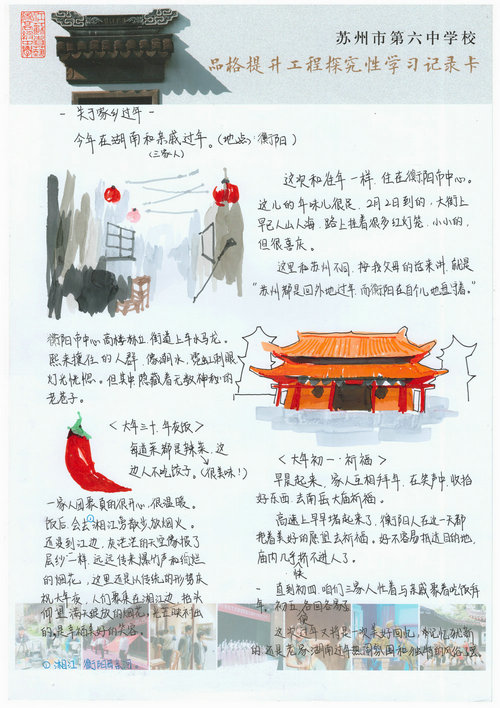 苏州市第六中学校
品格提升工程探究性学习记录卡
- 关于家乡过年 -
今年在湖南和亲戚过年。(地点: 衡阳)
(三家人)
这次和往年一样, 住在衡阳市中心。
这儿的年味儿很足, 2月2日到的, 大街上
早已人山人海, 路上挂着很多红灯笼, 小小的,
但很喜庆。
这里和苏州不同, 按我父母的话来讲, 就是
"苏州都是回外地过年, 而衡阳在自个儿地盘
衡阳市中心高楼林立, 街道上车水马龙。
熙来攘往的人群, 像潮水, 霓虹刺眼
灯光恍惚。但其中隐藏着无数神秘的
老巷子。
<大年三十, 年夜饭>
每道菜都是辣菜, 这
边人不吃饺子。(很美味!)
一家人团聚真的很开心, 很温暖。
饭后, 会去湘江①旁散步, 放烟火。
还没到江边, 灰茫茫的天空像报了
层纱一样, 远远传来爆竹声和绚烂
的烟花, 这里还以传统的形势庆
祝大年夜, 人们聚集在湘江边, 抬头
仰望, 满天绽放的烟花, 光芒映不出
的, 是幸福美好的笑容。
① 湘江: 衡阳
<大年初一·祈福>
早晨起来, 家人互相拜年, 在笑声中, 收拾
好东西, 去南岳大庙祈福。
高速上早早堵起来了, 衡阳人在这一天都
抱着美好的愿望去祈福。好不容易抵达目的地,
庙内几乎快挤不进人了。
- 直到初四, 咱们三家人忙着与亲戚聚着吃饭拜
年, 初五后回各家
这次过年又将是一次美好回忆, 令记忆犹新
的还是老家湖南过年